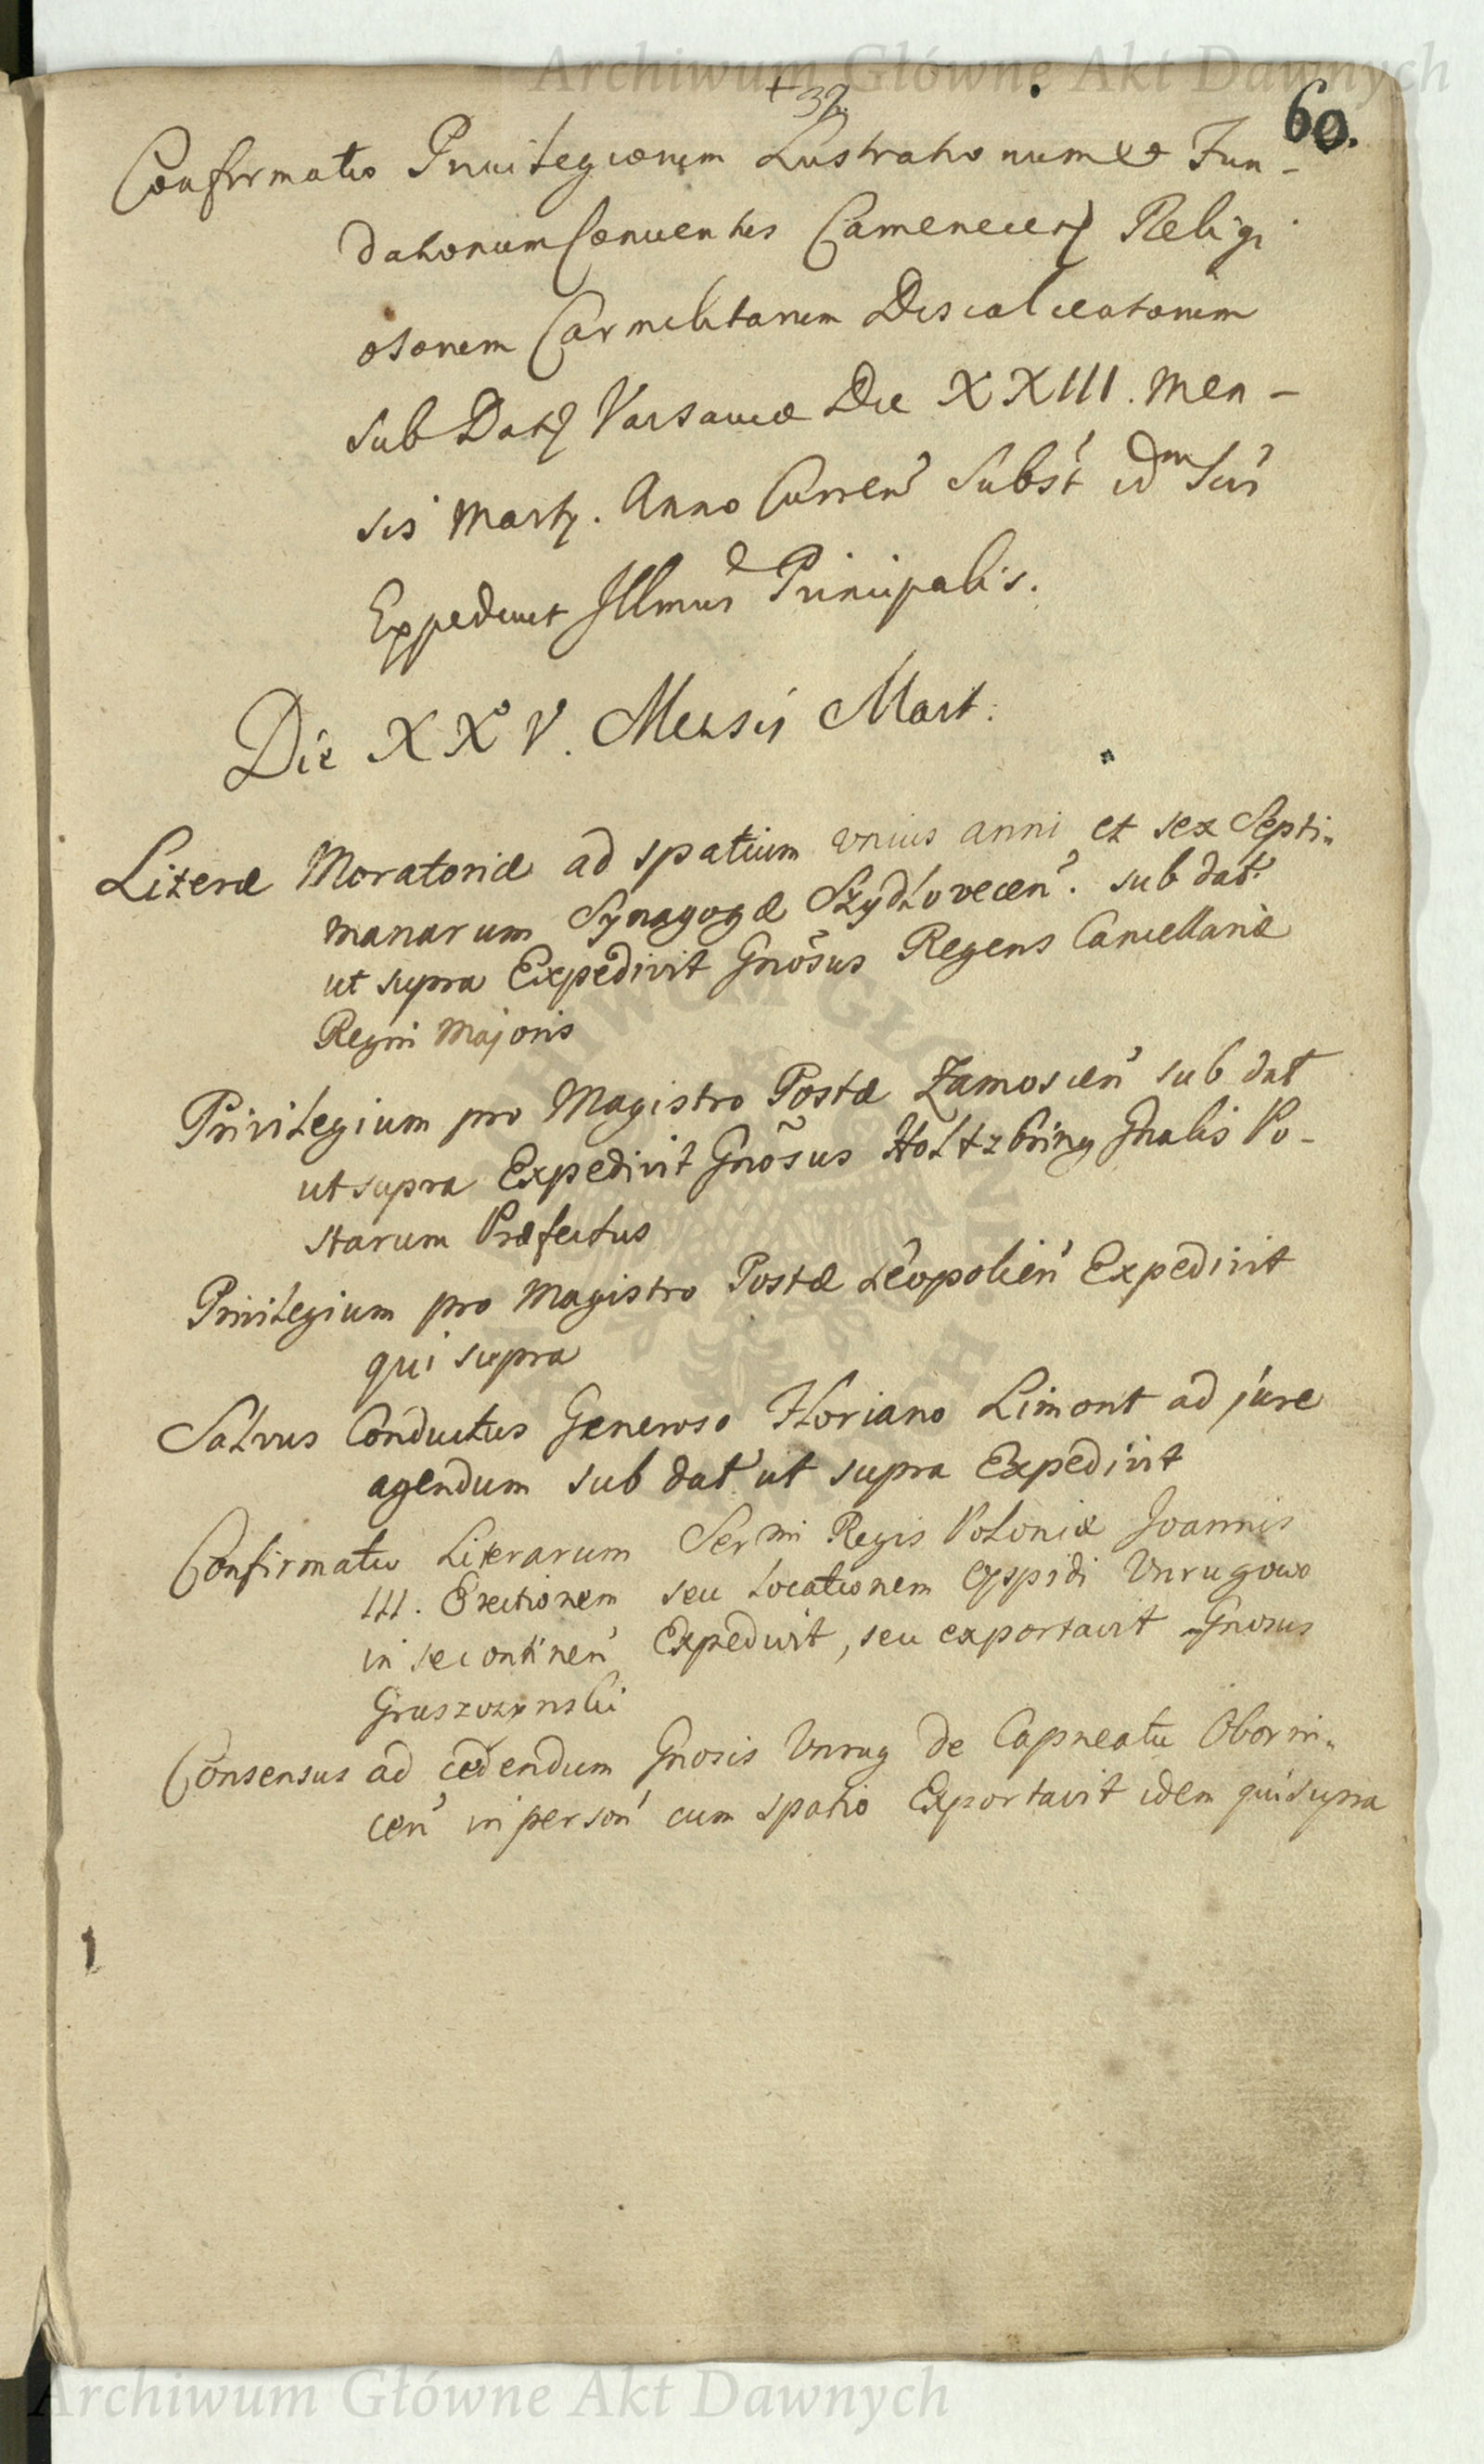 Archiwum Główne Akt Dawnych
+ 32.
60.
Confirmatio Privilegiorum Lustrationum et Fun-
dationum Conventus Camenecen Religi
osorum Carmelitarum Discalceatorum
sub Dat Varsaviæ Die XXIII. Men-
sis Martij. Anno Curren Subst id
Expedivit Illmus Principalis.
Die XXV. Mensis Mart:
Literæ Moratoriæ ad spatium unius anni et sex Septi-
manarum Synagogæ Szydłovecen. sub dat
ut supra Expedivit Gnosus Regens Cancellariæ
Regni Majoris
Privilegium pro Magistro Postæ Zamoscien sub dat
ut supra Expedivit Gnosus Holtzbring Gnalis Po-
starum Præfectus
Privilegium pro Magistro Postæ Leopolien Expedivit
qui supra
Salvus Conductus Generoso Floriano Limont ad jure
agendum sub dat ut supra Expedivit
Confirmatio Literarum Sermi Regis Poloniæ Joannis
III. Erectionem seu Locationem Oppidi Unrugowo
in se continen Expedivit, seu exportavit Gnosus
Gruszczynski
Consensus ad cedendum Gnosis Unrug de Capneatu Oborni-
cen in person cum spatio Exportavit idem qui supra
Archiwum Główne Akt Dawnych